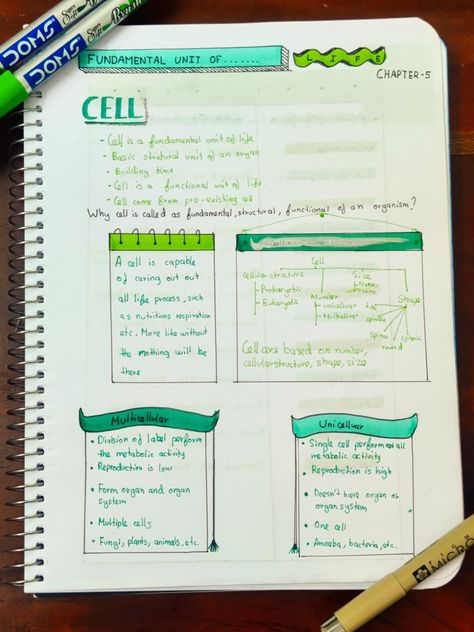 DOMS
Brush Pen
DOMS
Brush Pen
FUNDAMENTAL UNIT OF.......
LIFE
CHAPTER-5
CELL
- Cell is a fundamental unit of life
- Basic stratural unit of an organ
- Building block
- Cell is a functional unit of life.
- Cell come from pre-existing cell
Why cell is called as fundamental, structural, functional of an organism?
A cell is capable
of caring out out
all life process, such
as nutritions respiration
etc. More like without
the nothing will be
there
Cell
Cellular structure
Size
Prokaryotic
Eukaryotic
Number
unicellular
Multicellular
Shape
spindle
round
Cell are based on number,
cellular structure, shape, size
Multicellular
• Division of label perform
the metabolic activity
• Reproduction is low
• Form organ and organ
system
• Multiple cells
• Fungi, plants, animals, etc.
Unicelluar
• Single cell performed all
metabolic activity
• Reproduction is high
• Doesn't have organ or
organ system
• One cell
• Amoeba, bacteria, etc.
MICRO